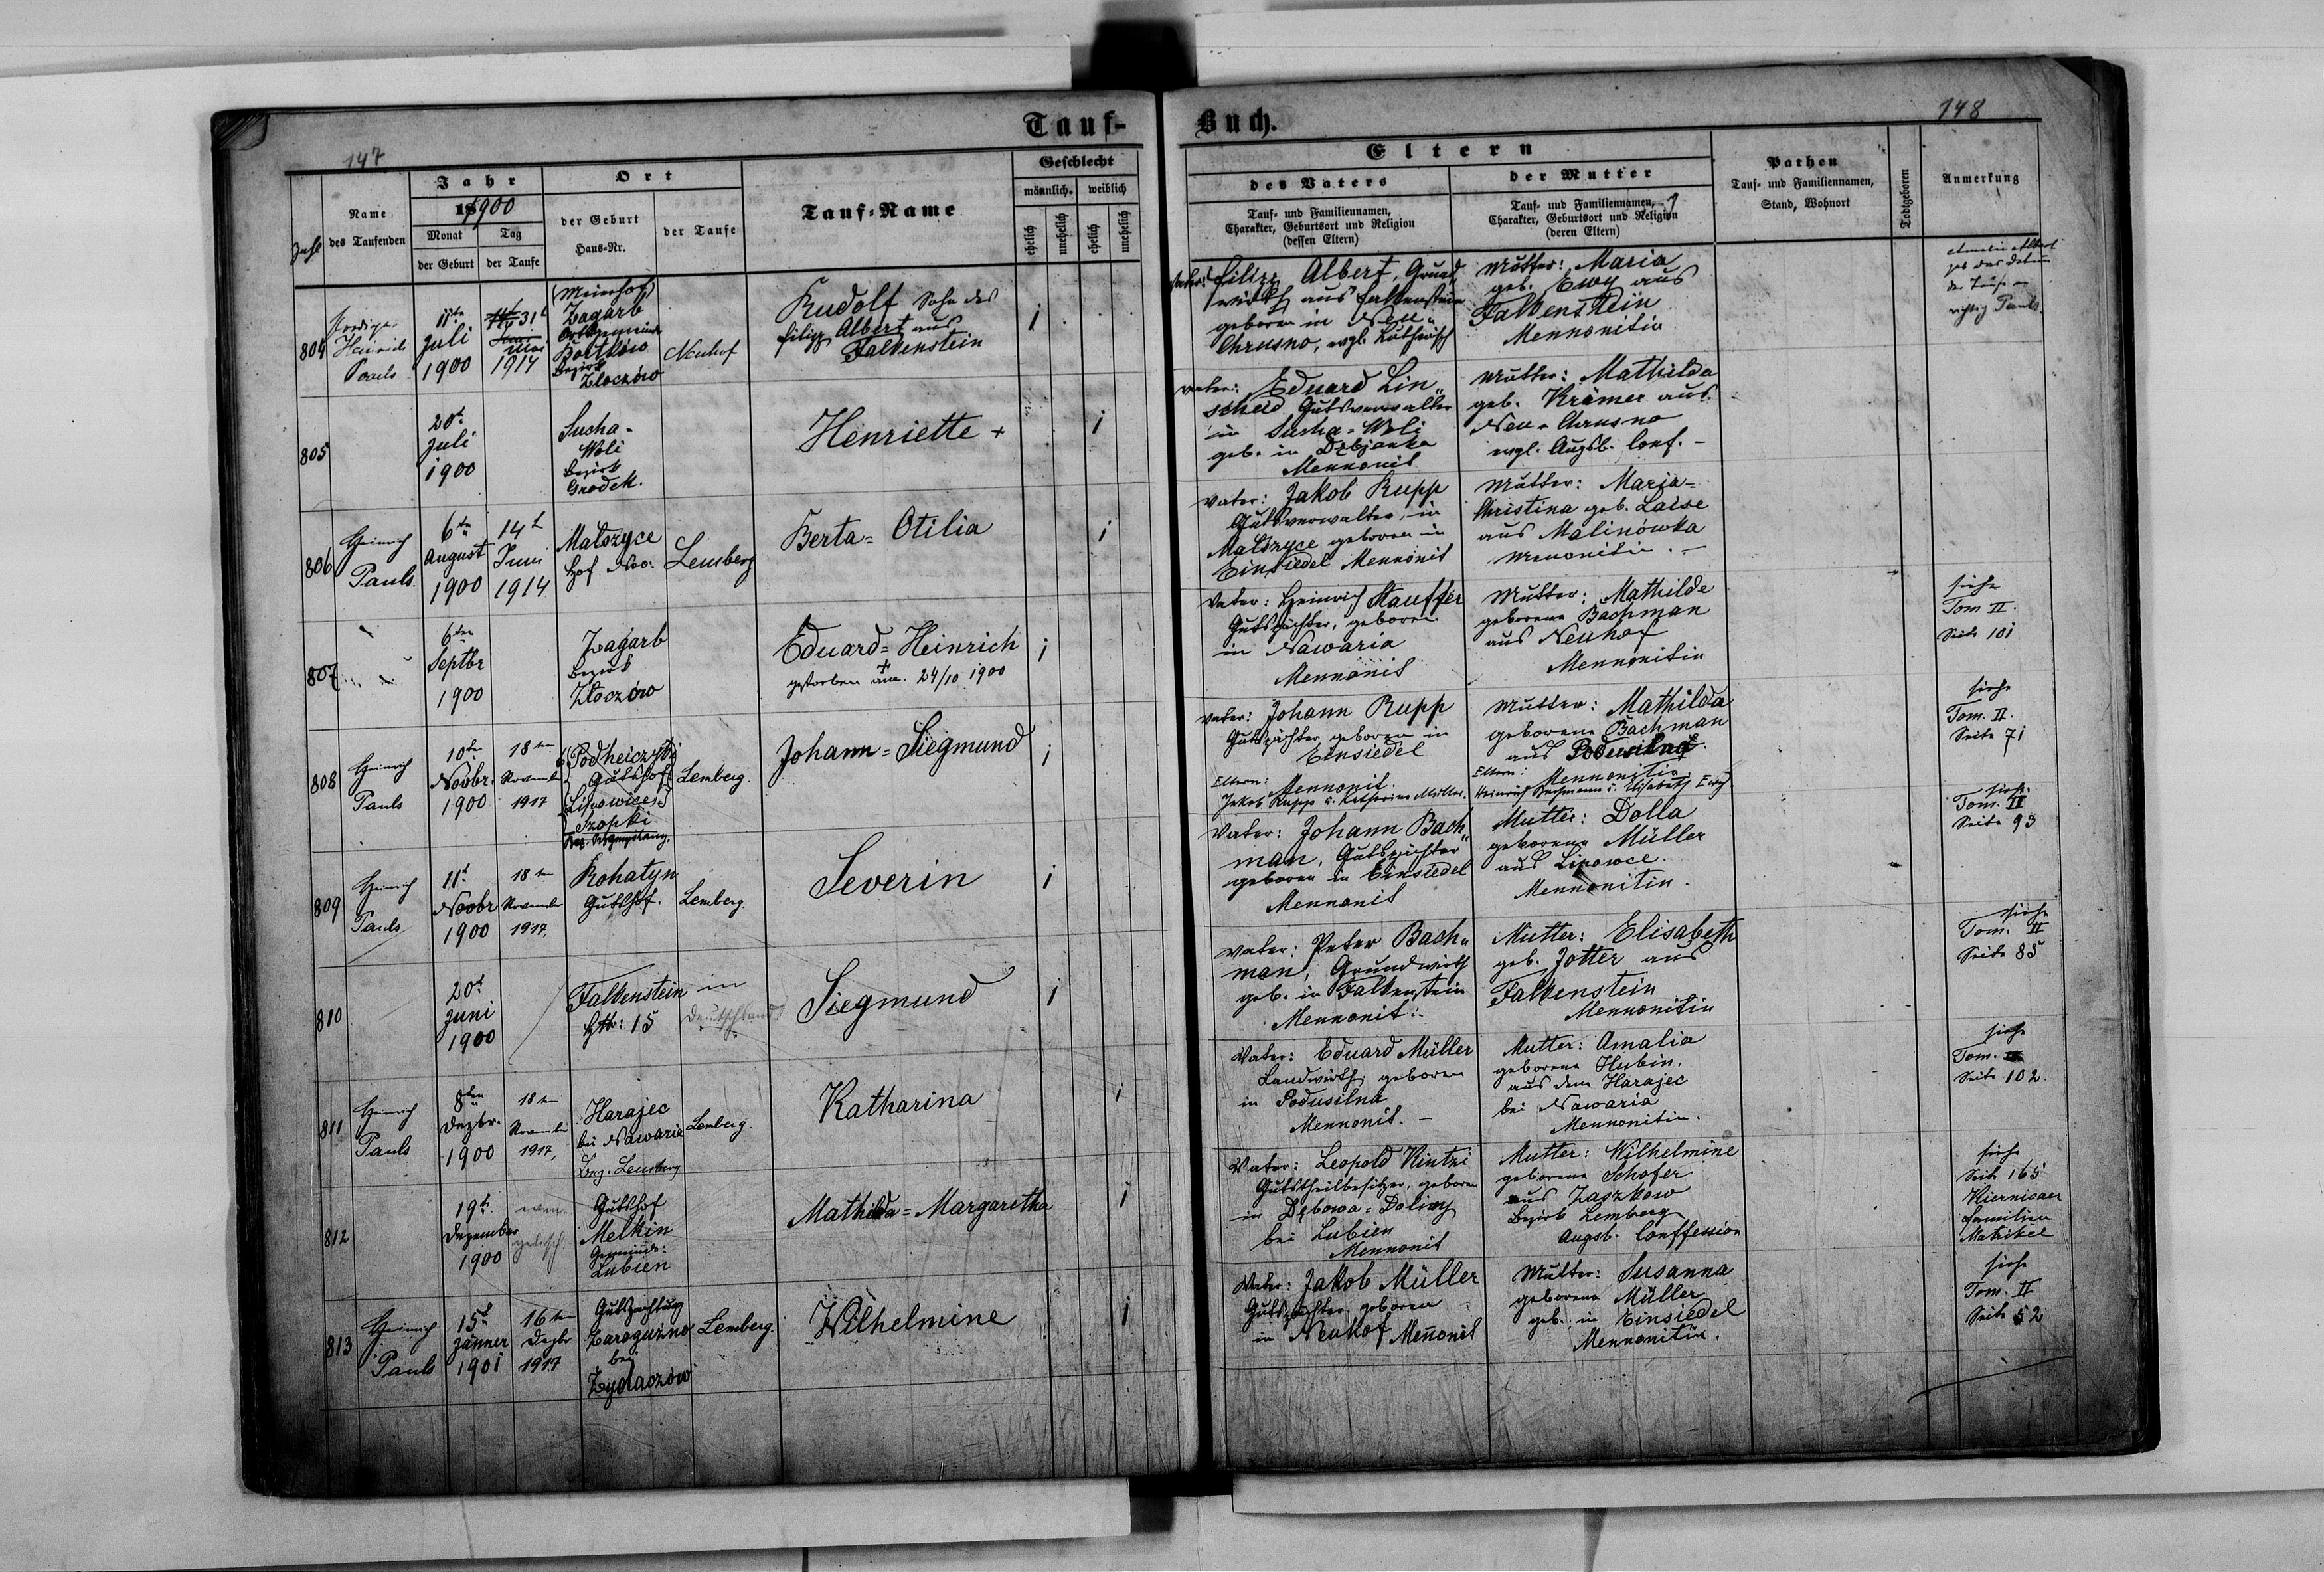 147
Tauf-
Zahl
Name
des Taufenden
Jahr
1900
Monat
der Geburt
Tag
der Taufe
Ort
der Geburt
Haus-Nr.
der Taufe
Tauf-Name
Geschlecht
männlich.
weiblich
ehelich
unehelich
ehelich
unehelich
804
Prediger
Heinrich
Pauls
11ten
Juli
1900
31
Mai
1914
(Meierhof)
Zagarb
Bezirk
Złoczów
Neuhof
Rudolf Sohn des
Filipp Albert aus
Falkenstein
1
805
20t
Juli
1900
Sucha-
Woli
Bezirk
Grodek.
Henriette +
1
806
Heinrich
Pauls.
6ten
August
1900
14t
Juni
1914
Matszyce
Hof Nro.
Lemberg
Berta= Otilia
1
807
6ten
Septbr
1900
Zagarb
Bezirk
Złoczów
Eduard= Heinrich
gestorben am. 24/10 1900
1
808
Heinrich
Pauls
10ten
Novbr.
1900
18ten
November
1917
Podheiczyki
Gutshof
Szopki
Lemberg.
Johann= Siegmund
1
809
Heinrich
Pauls
11t
Novbr
1900
18ten
November
1917.
Rohatyn
Gutshof.
Lemberg.
Severin
1
810
20t
Juni
1900
Falkenstein in
Deutschland
15
Siegmund
1
811
Heinrich
Pauls
8ten
Dezbr.
1900
18ten
November
1917,
Harajec
bei Nawaria
Bez. Lemberg
Lemberg.
Katharina
1
812
19t.
Dezember
1900
Gutshof
Melkin
Gemeinde:
Lubien
Mathilda= Margaretha
1
813
Heinrich
Pauls
15t
Jänner
1901
16ten
Dezbr
1917
Gutspachtung
bei
Zydaczów
Lemberg.
Wilhelmine
1
148
Buch.
Eltern
des Vaters
Tauf- und Familiennamen,
Charakter, Geburtsort und Religion
(dessen Eltern)
der Mutter
Tauf- und Familiennamen,
Charakter, Geburtsort und Religion
(deren Eltern)
Pathen
Tauf- und Familiennamen,
Stand, Wohnort
Todtgeboren
Anmerkung
Vater: Filipp Albert, Grund
wirth aus Falkenstein
geboren in Neu-
Chrusno, evgl. Lutherisch
Mutter: Maria
geb. Ewy aus
Falkenstein
Mennonitin
richtig Pauls
Vater: Eduard Lin„
scheid Gutsverwalter
in Sucha= Woli
geb. in Dębjanka
Mennonit
Mutter: Mathilda
geb. Krämer aus
Neu- Chrusno
evgl. Augsb. Conf. -
Vater: Jakob Rupp
Gutsverwalter, in
Matszyce geboren in
Einsiedel Mennonit
Mutter: Maria=
Christina geb. Laise
aus Malinówka
Mennonitin. -
Vater: Heinrich Stauffer
Gutspächter, geboren
in Nawaria
Mennonit
Mutter: Mathilde
geborene Bachman
aus Neuhof
Mennonitin
siehe
Tom II.
Seite 101
Vater: Johann Rupp
Gutspächter geboren in
Einsiedel
Eltern: Mennonit.
Jakob Rupp u. Katharina Müller.
Mutter: Mathilda
geborene Bachman
aus Podusilna.
Eltern: Mennonitin
Heinrich Bachmann u. Elisabeth Ewy
siehe
Tom. II.
Seite 71
Vater: Johann Bach„
man, Gutspächter
geboren in Einsiedel
Mennonit
Mutter: Dolla
geborene Müller
aus Lipowce.
Mennonitin.
siehe
Tom. II
Seite 93
Vater: Peter Bach„
man, Grundwirth
geb. in Falkenstein
Mennonit.
Mutter: Elisabeth
geb. Jotter aus
Falkenstein
Mennonitin
siehe
Tom. II
Seite 85
Vater: Eduard Müller
Landwirth geboren
in Podusilna
Mennonit. -
Mutter: Amalia
geborene Hubin,
aus dem Harajec
bei Nawaria
Mennonitin.
siehe
Tom.
Seite 102.
Vater: Leopold Kintzi
Gutstheilbesitzer, geboren
in Dębowa= Doliny
bei Lubien
Mennonit
Mutter: Wilhelmine
geborene Schofer
aus Zaszkow
Bezirk Lemberg
Augsb. Conffession
siehe
Seite 165
Kiernicaer
Familien
Matrikel
Vater: Jakob Müller
Gutspächter, geboren
in Neuhof Mennonit
Mutter: Susanna
geborene Müller
geb. in Einsiedel
Mennonitin.
siehe
Tom. II
Seite 52